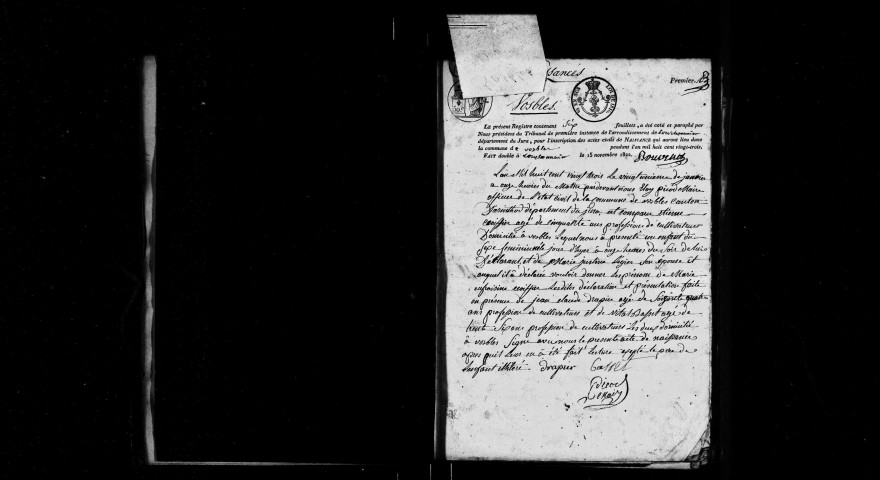 Naissances
Premier
Vosbles.
Le présent Registre contenant Six feuillets, a été coté et paraphé par
Nous président du Tribunal de première instance de l'arrondissement de
département du Jura, pour l'inscription des actes civils de NAISSANCE qui auront lieu dans
la commune de Vosbles pendant l'an mil huit cent vingt-trois.
FAIT double à le 15 novembre 1822.
L'an Mil huit cent vingt trois le vingt unieme de janvier
a onze heures du Matin pardevant nous Eloy pirod Maire
officier de l'état Civil de la commune de vosbles canton
D'arinthod département du jura, est comparu Etienne
agé de cinquante ans profession de cultivateur
Domicilié à vosbles Lequel nous à presenté un enfant du
Sexe feminin jour d'hyer à onze heures du Soir de lui
Déclarant, et de Marie justine Son épouse et
auquel il à déclaré vouloir donner les prenoms de Marie
Lesdites déclaration et présentation faite
en présence de jean claude drapier agé de Soixante quatre
ans profession de cultivateur et de vital Basset agé de
trente Six ans profession de cultivateur Les deux domicilié
à vosbles Signé avec nous le present acte de naissance
apres qu'il Leur en à été fait lecture excepté le pere de
L'enfant illitéré drapier Basset
Pirod
Maire